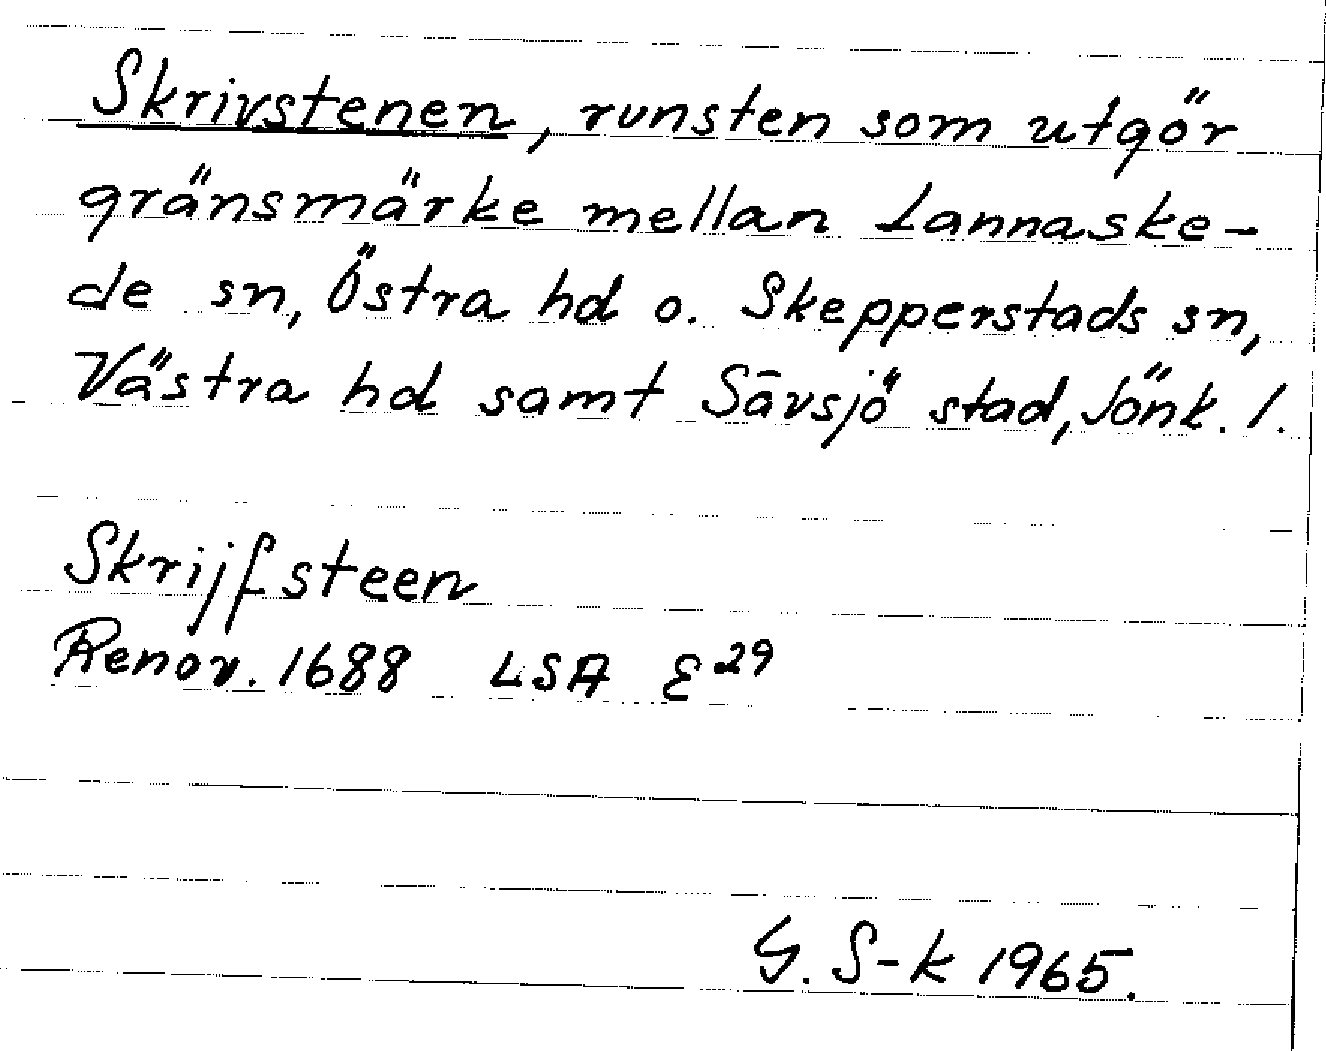 Skrivstenen, runsten som utgör
gränsmärke mellan Lannaske-
de sn, Östra hd o. Skepperstads sn,
Västra hd samt Sävsjö stad, Jönk. l.
Skrijfsteen
Renov. 1688 LSA E 29
G. S-k 1965.